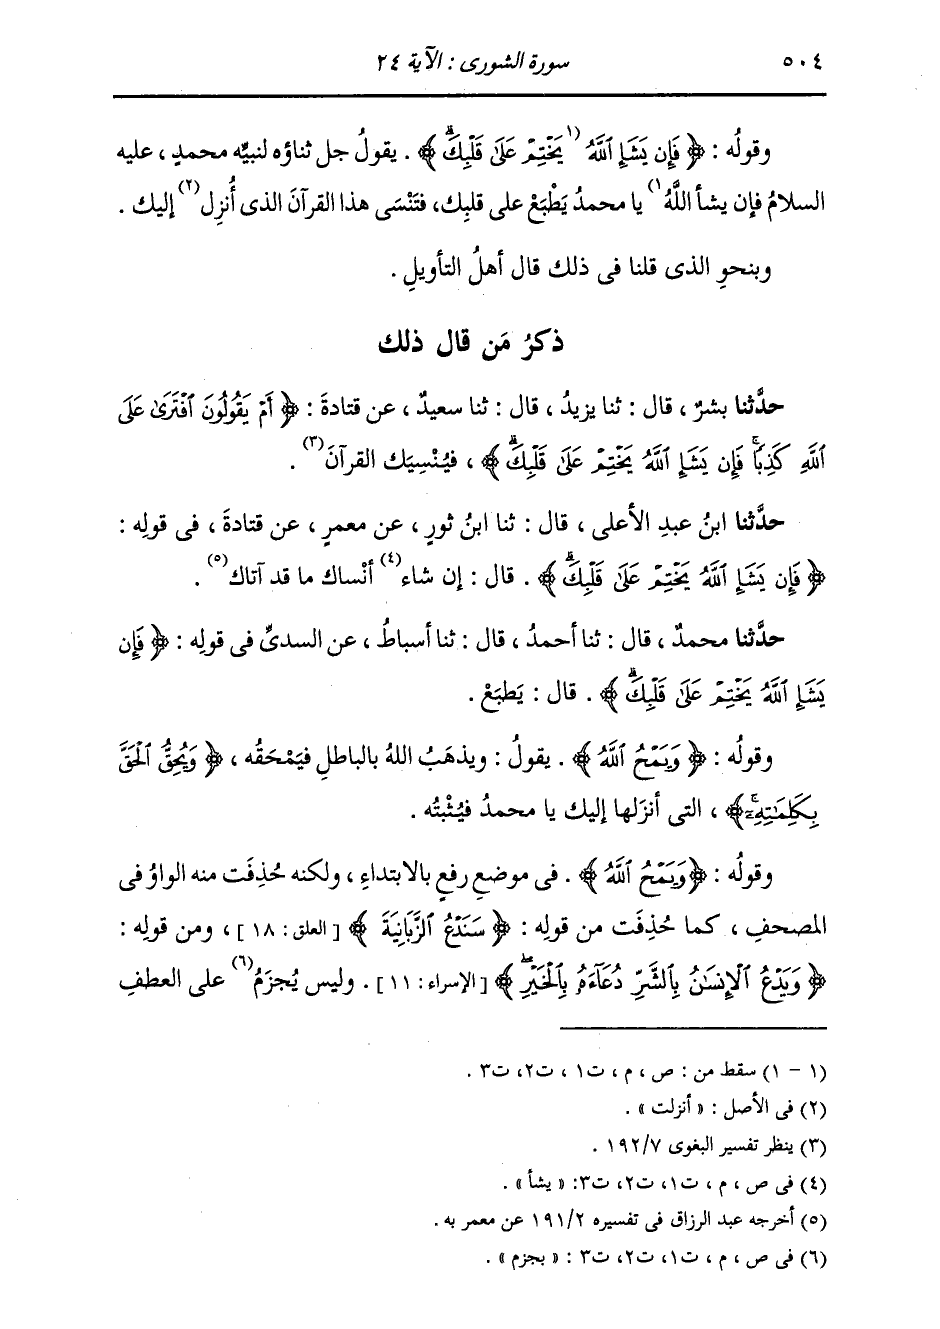 ٥٠٤ سورة الشورى : الآية ٢٤
وقولُه : ﴿ فَإِن يَشَإِ ٱللَّهُ (١ يَخْتِمْ عَلَىٰ قَلْبِكَۗ ﴾ . يقولُ جل ثناؤه لنبيِّه محمدٍ ، عليه
السلامُ فإن يشأ اللَّهُ ١) يا محمدُ يَطْبَعْ على قلبِك، فتَنْسَى هذا القرآنَ الذى أُنزِل (٢) إليك .
وبنحوِ الذى قلنا فى ذلك قال أهلُ التأويلِ .
ذكرُ مَن قال ذلك
حدَّثنا بشرٌ ، قال : ثنا يزيدُ ، قال : ثنا سعيدٌ ، عن قتادةَ : ﴿ أَمْ يَقُولُونَ ٱفْتَرَىٰ عَلَى
ٱللَّهِ كَذِبًاۖ فَإِن يَشَإِ ٱللَّهُ يَخْتِمْ عَلَىٰ قَلْبِكَۗ ﴾ ، فيُنْسِيَك القرآنَ (٣) .
حدَّثنا ابنُ عبدِ الأعلى ، قال : ثنا ابنُ ثورٍ ، عن معمرٍ ، عن قتادةَ ، فى قولِه :
﴿ فَإِن يَشَإِ ٱللَّهُ يَخْتِمْ عَلَىٰ قَلْبِكَۗ ﴾ . قال : إن شاء (٤) أنْساك ما قد آتاك (٥) .
حدَّثنا محمدٌ ، قال : ثنا أحمدُ ، قال : ثنا أسباطُ ، عن السدىِّ فى قولِه : ﴿ فَإِن
يَشَإِ ٱللَّهُ يَخْتِمْ عَلَىٰ قَلْبِكَۗ ﴾ . قال : يَطبَعْ .
وقولُه : ﴿ وَيَمْحُ ٱللَّهُ ﴾ . يقولُ : ويذهَبُ اللهُ بالباطلِ فيَمْحَقُه ، ﴿ وَيُحِقُّ ٱلْحَقَّ
بِكَلِمَٰتِهِۦٓۚ ﴾ ، التى أنزَلها إليك يا محمدُ فيُثْبتُه .
وقولُه : ﴿ وَيَمْحُ ٱللَّهُ ﴾ . فى موضعِ رفعٍ بالابتداءِ ، ولكنه حُذِفَت منه الواوُ فى
المصحفِ ، كما حُذِفَت من قولِه : ﴿ سَنَدْعُ ٱلزَّبَانِيَةَ ﴾ [ العلق : ١٨ ] ، ومن قولِه :
﴿ وَيَدْعُ ٱلْإِنسَٰنُ بِٱلشَّرِّ دُعَآءَهُۥ بِٱلْخَيْرِۖ ﴾ [ الإسراء : ١١ ] . وليس يُجزَمُ (٦) على العطفِ
(١ - ١) سقط من : ص ، م ، ت١ ، ت٢، ت٣ .
(٢) فى الأصل : « أنزلت » .
(٣) ينظر تفسير البغوى ١٩٢/٧ .
(٤) فى ص ، م ، ت١، ت٢، ت٣: « يشأ » .
(٥) أخرجه عبد الرزاق فى تفسيره ١٩١/٢ عن معمر به .
(٦) فى ص ، م ، ت١، ت٢، ت٣ : « بجزم » .